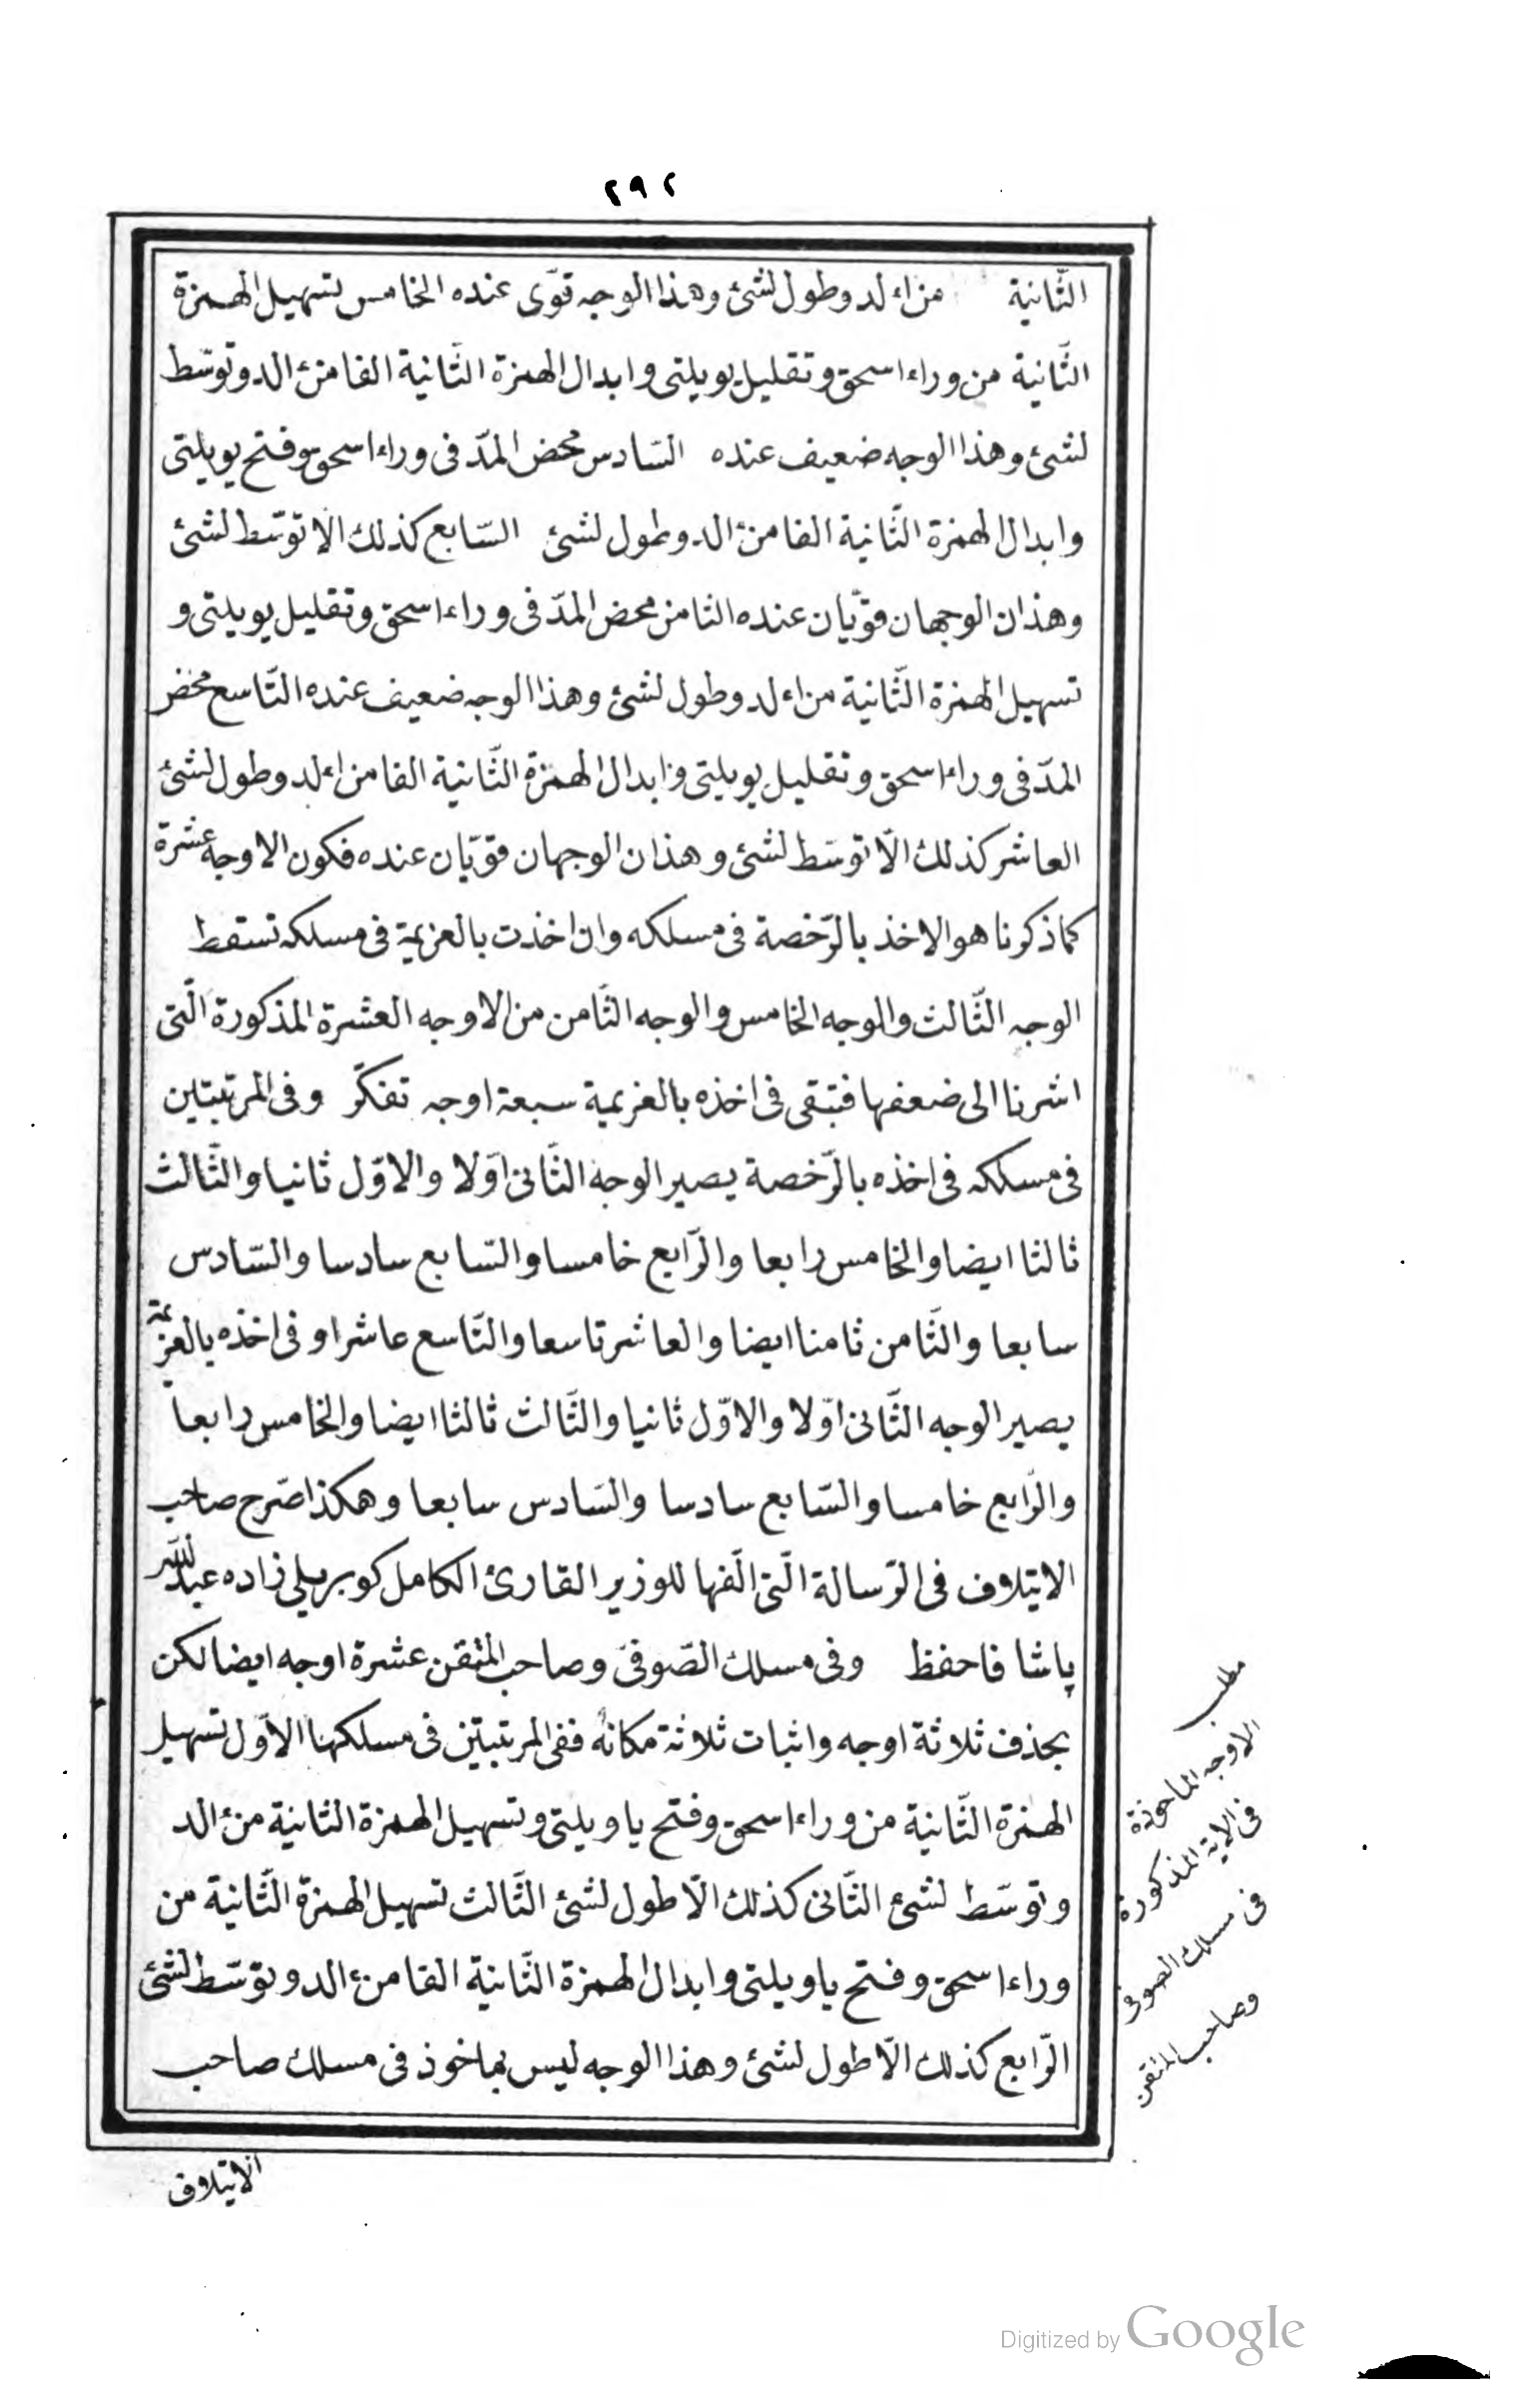 ٢٩٢
الثّانية من ءالد وطول لشئ وهذا الوجه قوّى عنده الخامس تسهيل الهمزة
الثّانية من وراء اسحق وتقليل يويلتى وابدال الهمزة الثّانية الفا من ءالد وتوسّط
لشئ وهذا الوجه ضعيف عنده السّادس محض المدّ فى وراء اسحق وفتح يويلتى
وابدال الهمزة الثّانية الفا من ءالد وطول لشئ السّابع كذلك الّا توسّط لشئ
وهذان الوجهان قوّيان عنده الثامن محض المدّ فى وراء اسحق وتقليل يويلتى و
تسهيل الهمزة الثّانية من ءالد وطول لشئ وهذا الوجه ضعيف عنده التّاسع محض
المدّ فى وراء اسحق وتقليل يويلتى وابدال الهمزة الثّانية الفا من ءالد وطول لشئ
العاشر كذلك الّا توسّط لشئ وهذان الوجهان قوّيان عنده فكون الاوجه عشرة
كما ذكرنا هو الاخذ بالرّخصة فى مسلكه وان اخذت بالعزيمة فى مسلكه تسقط
الوجه الثّالث والوجه الخامس والوجه الثّامن من الاوجه العشرة المذكورة الّتى
اشرنا الى ضعفها فتبقى فى اخذه بالعزيمة سبعة اوجه تفكّر وفى المرتبتين
فى مسلكه فى اخذه بالرّخصة يصير الوجه الثّانى اوّلا والاوّل ثانيا والثّالث
ثالثا ايضا والخامس رابعا والرّابع خامسا والسّابع سادسا والسّادس
سابعا والثّامن ثامنا ايضا والعاشر تاسعا والتّاسع عاشرا وفى اخذه بالعزيمة
يصير الوجه الثّانى اوّلا والاوّل ثانيا والثّالث ثالثا ايضا والخامس رابعا
والرّابع خامسا والسّابع سادسا والسّادس سابعا وهكذا صرّح صاحب
الايتلاف فى الرّسالة الّتى الّفها للوزير القارئ الكامل كوبريلى زاده عبد اللّه
پاشا فاحفظ وفى مسلك الصّوفىّ وصاحب المتقن عشرة اوجه ايضا لكن
بحذف ثلاثة اوجه واثبات ثلاثة مكانه ففى المرتبتين فى مسلكهما الاوّل تسهيل
الهمزة الثّانية من وراء اسحق وفتح ياويلتى وتسهيل الهمزة الثانية من ءالد
وتوسّط لشئ الثّانى كذلك الّا طول لشئ الثّالث تسهيل الهمزة الثّانية من
وراء اسحق وفتح ياويلتى وابدال الهمزة الثّانية الفا من ءالد وتوسّط لشئ
الرّابع كذلك الّا طول لشئ وهذا الوجه ليس بماخوذ فى مسلك صاحب
الايتلاف
مطلب
الاوجه الماخوذة
فى الاية المذكورة
فى مسلك الصوفى
وصاحب المتقن
Digitized by Google